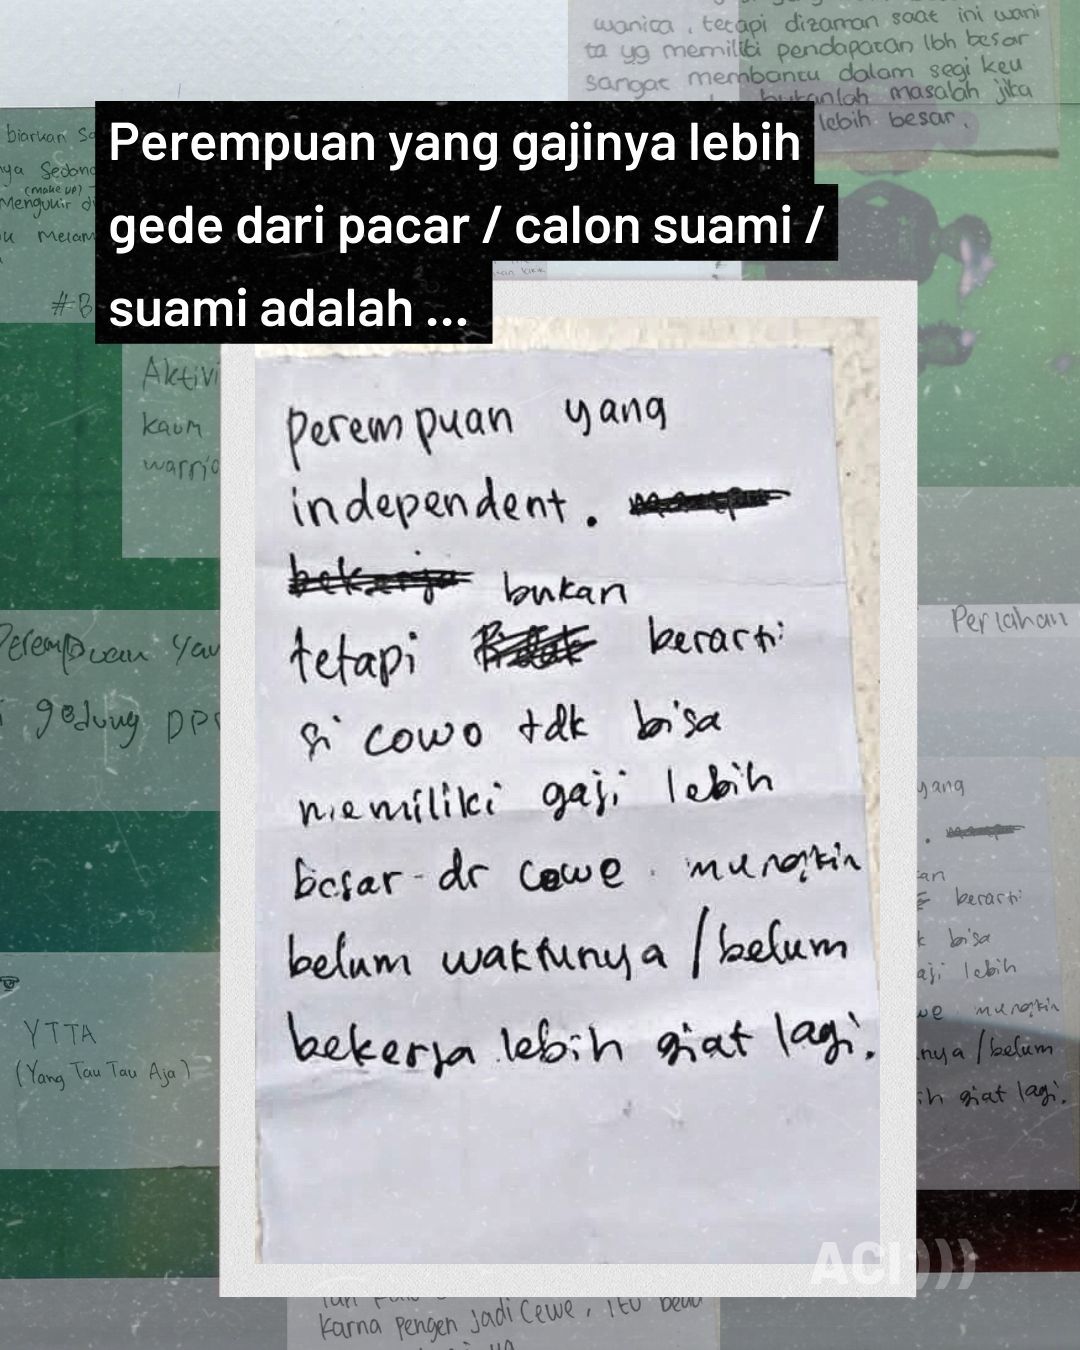 wanita, tetapi dizaman saat ini wani
ta yg memiliki pendapatan lbh besar
sangat membantu dalam segi keu
bukanlah masalah jika
lebih besar.
biarkan
(make up)
#B
Perempuan yang gajinya lebih
gede dari pacar / calon suami /
suami adalah ...
Aktivi
kaum
warrio
perempuan yang
independent.
bukan
tetapi berarti
si cowo tdk bisa
memiliki gaji lebih
besar dr cewe. mungkin
belum waktunya / belum
bekerja lebih giat lagi.
Perempuan yan
gedung DPR
YTTA
(Yang Tau Tau Aja)
yang
berarti
bisa
aji lebih
mungkin
nya / belum
giat lagi.
ACI)))
karna pengen jadi cewe, itu